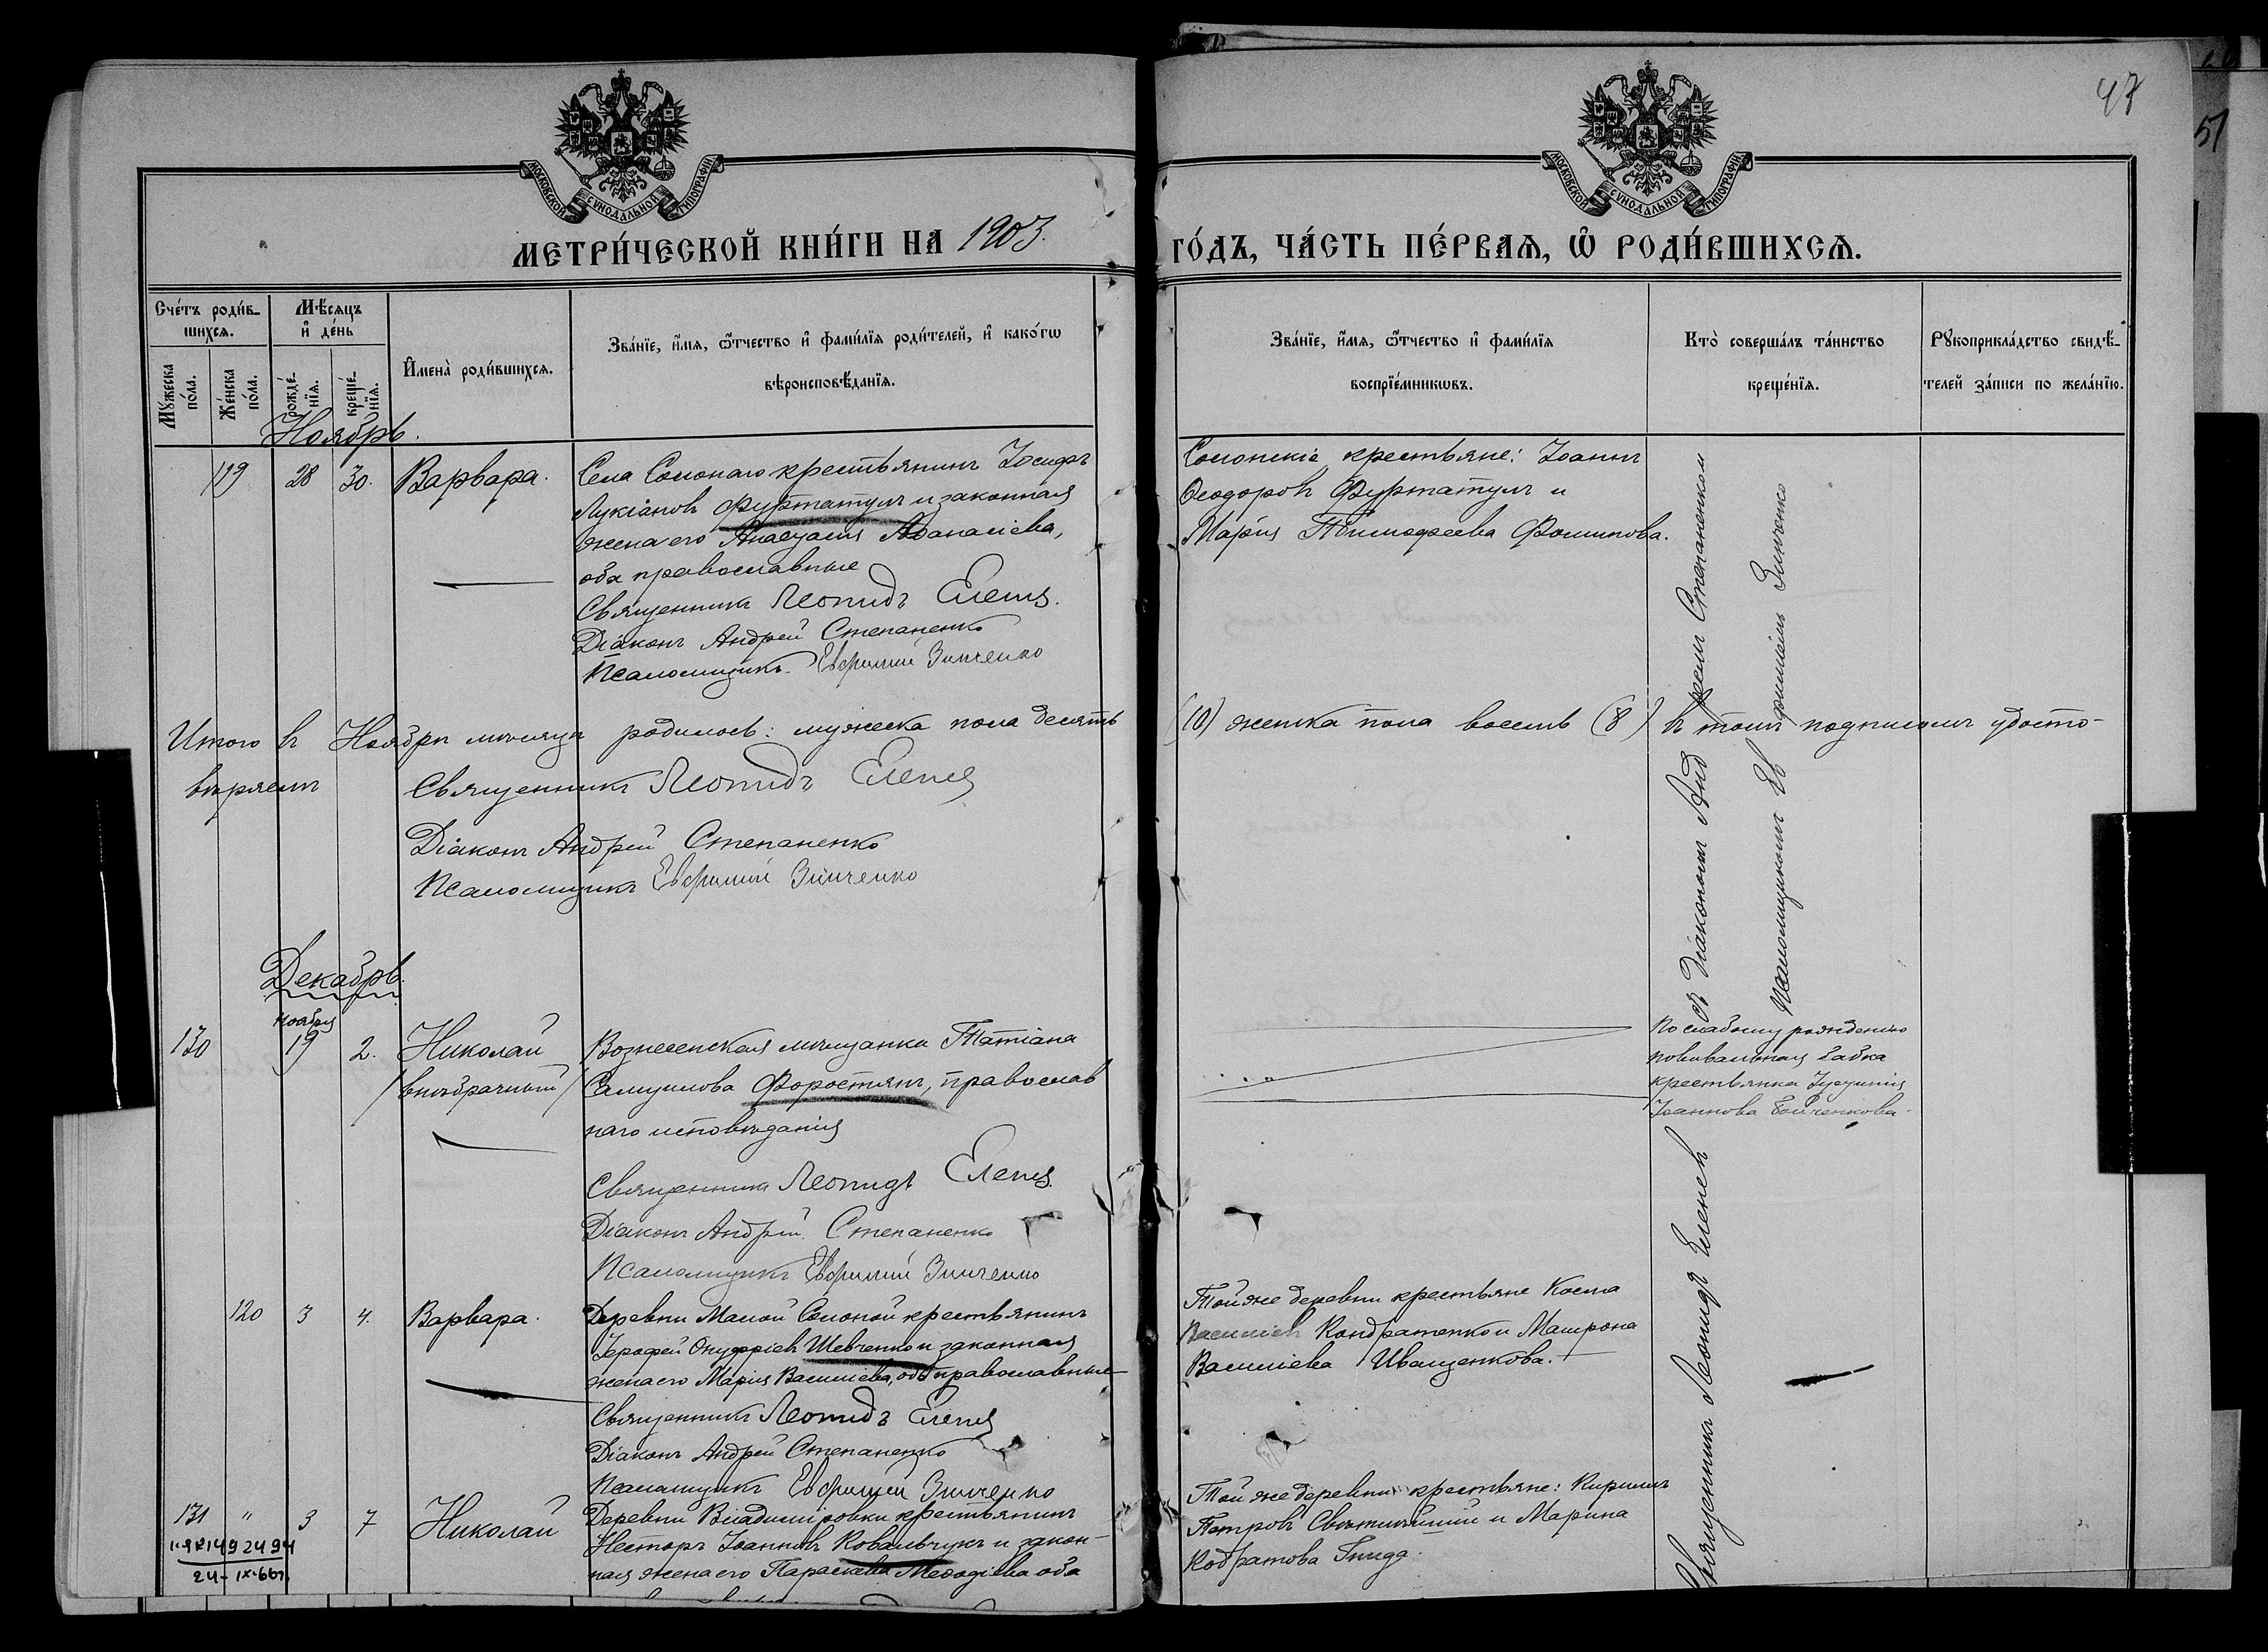 47
51
МОСКОВСКОЙ СУНОДАЛЬНОЙ ТИПОГРАФІИ
МОСКОВСКОЙ СУНОДАЛЬНОЙ ТИПОГРАФІИ
МЕТРИ́ЧЕСКОЙ КНИ́ГИ НА 1903. ГО́ДЪ, ЧА́СТЬ ПЕ́РВАѦ, Ѡ҆ РОДИ́ВШИХСѦ.
Сче́тъ роди́в-
шихсѧ.
Мѣ́сѧцъ
и҆ де́нь
Мꙋ́жеска
по́ла.
Же́нска
по́ла.
рожде́-
нїѧ.
креще́-
нїѧ.
И҆мена̀ роди́вшихсѧ.
Зва́нїе, и҆́мѧ, ѻ҆́тчество и҆ фами́лїѧ роди́телей, и҆ како́гѡ
вѣроисповѣ́данїѧ.
Зва́нїе, и҆́мѧ, ѻ҆́тчество и҆ фами́лїѧ
воспрїе́мникѡвъ.
Кто̀ соверша́лъ та́инство
креще́нїѧ.
Рꙋкоприкла́дство свидѣ́-
телей за́писи по жела́нїю.
Ноябрь.
119 28 30. Варвара.
Села Солонаго крестьянинъ Іосифъ
Лукіановъ Фуртатулъ и законная
жена его Анастасія Аѳанасіева,
оба православные
Священникъ Леонидъ Еленев.
Діаконъ Андрей Степаненко
Псаломщикъ Евфимій Зинченко
Солонскіе крестьяне: Іоаннъ
Ѳеодоровъ Фуртатулъ и
Марія Тимофеева Фоминова.
Итого въ Ноябрѣ мѣсяцѣ родилось: мужеска пола десять (10) женска пола восемь (8) въ томъ подписомъ удосто-
вѣряемъ
Священникъ Леонидъ Еленев
Діаконъ Андрей Степаненко
Псаломщикъ Евфимій Зинченко
Декабрь.
ноября
130 19 2. Николай
/внѣбрачный/
Вознесенская мѣщанка Татіана
Самуилова Форостянъ, православ
наго исповѣданія
Священникъ Леонидъ Еленев.
Діаконъ Андрей Степаненко
Псаломщикъ Евфимій Зинченко
По слабому рожденію
повивальная бабка
крестьянка
Іоаннова Бойченкова.
120 3 4. Варвара.
Деревни Малой Солоной крестьянинъ
Іерофей Онуфріевъ Шевченко и законная
жена его Марія Василіева, оба православные
Священникъ Леонидъ Еленев
Діаконъ Андрей Степаненко
Псаломщикъ Евфимій Зинченко
Той же деревни крестьяне Косма
Василіевъ Кондратенко и Матрона
Василіева Иващенкова.
131 " 3 7 Николай
24-IX-66г.
Деревни Владиміровки крестьянинъ
Несторъ Іоанновъ Ковальчукъ и закон-
ная жена его Параскева Меѳодіева оба
Той же деревни крестьяне: Кириллъ
Петровъ и Марина
Кодратова Гнида.
Священникъ Леонидъ Еленевъ
съ Діакономъ Андреемъ Степаненкомъ
Псаломщикомъ Евфиміемъ Зинченко